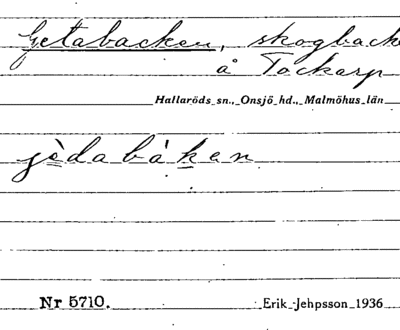 Getabacken, skogback
å Tockarp
Hallaröds sn., Onsjö hd., Malmöhus län
jèdabàkan
Nr 5710.
Erik Jehpsson 1936